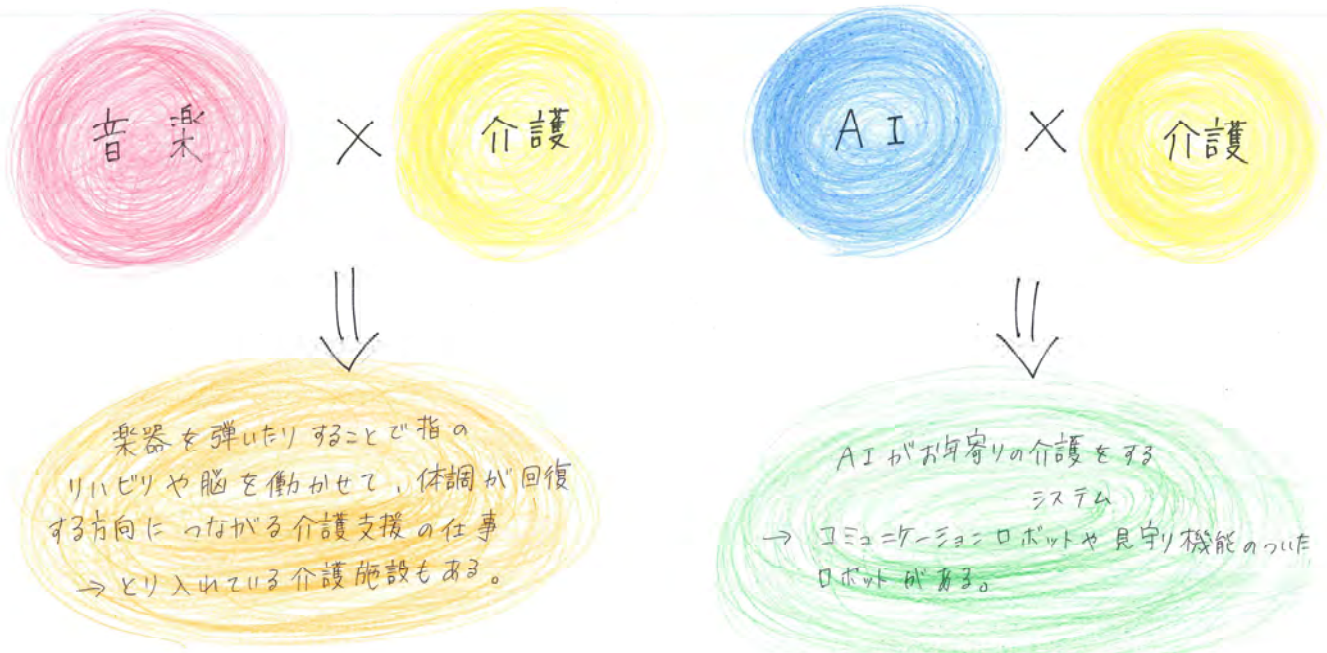 音楽 × 介護
楽器を弾いたりすることで指の
リハビリや脳を働かせて、体調が回復
する方向につながる介護支援の仕事
→とり入れている介護施設もある。
AI × 介護
AIがお年寄りの介護をする
システム
→ コミュニケーションロボットや見守り機能のついた
ロボットがある。